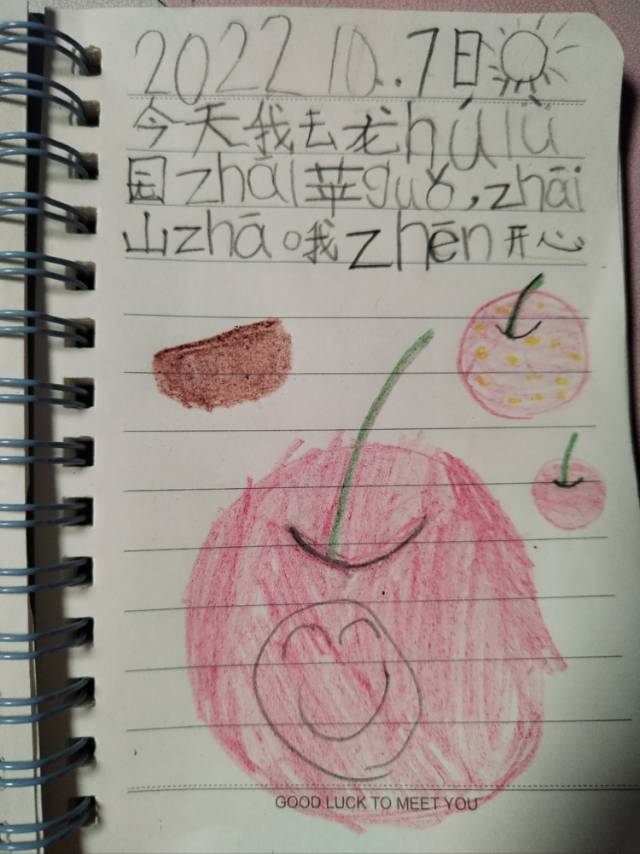 2022 10.7日
今天我去龙húlù
园zhāi苹guǒ,zhāi
山zhā。我zhēn开心
GOOD LUCK TO MEET YOU